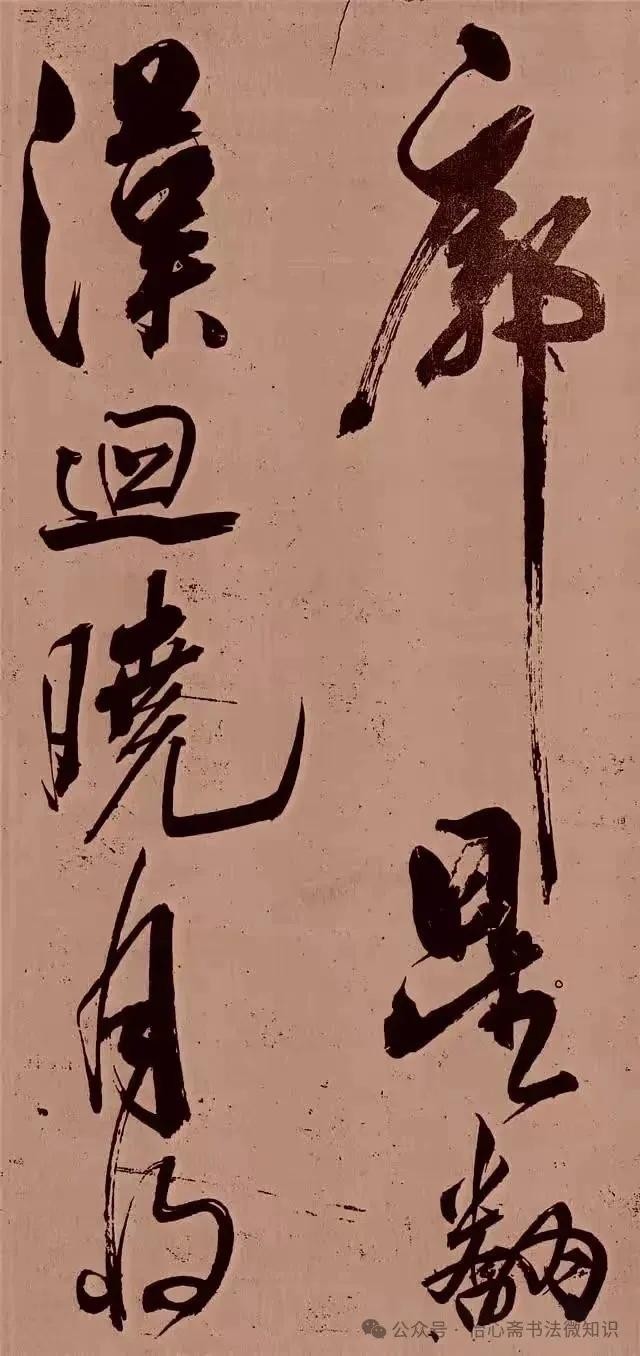 廓星翻
漢迴曉月將
公众号 · 怡心斋书法微知识